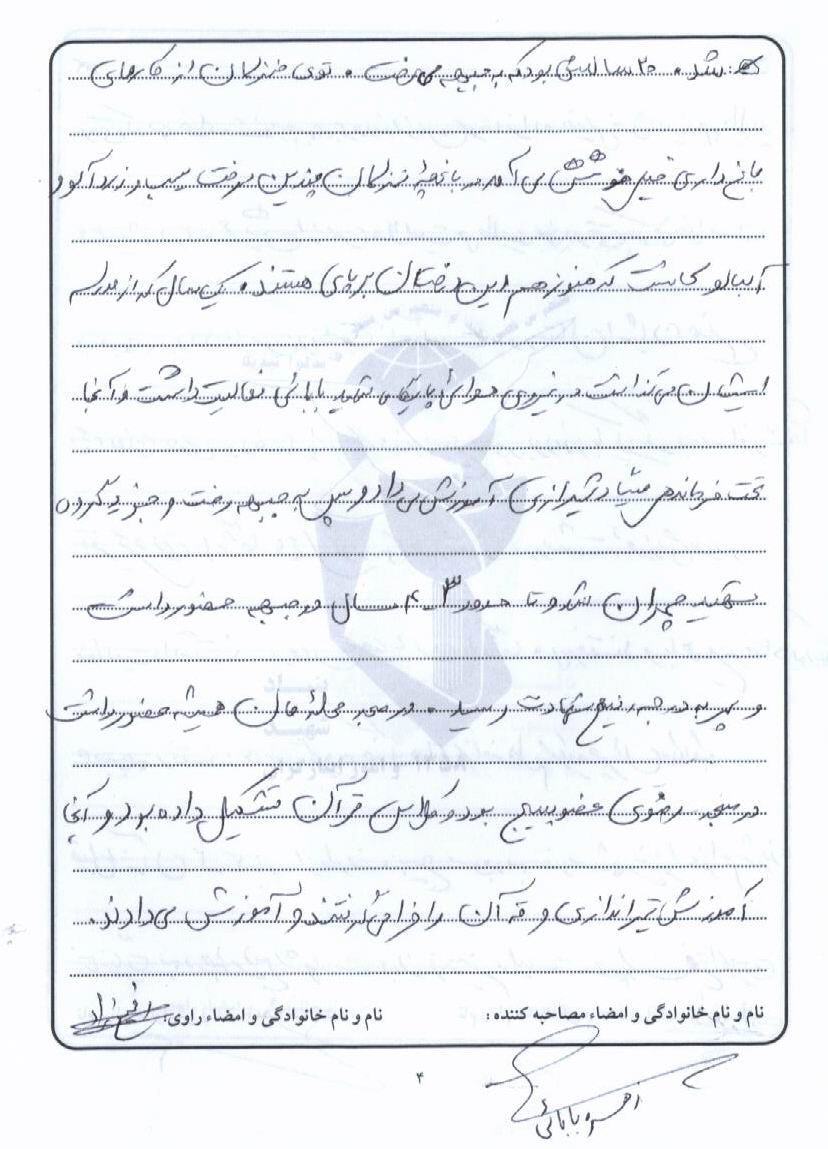 شد. ۲۰ سالش بود که به جبهه می رفت. توی منزلمان از کارهای
باغ داری خیلی خوشش می آمد در باغچه منزلمان چندین درخت سیب و زردآلو و
آلبالو کاشت که هنوز هم این درختان برپای هستند. یک سال که از مدرسه
ایشان می گذاشت در نیروی هوائی پایگاهی شهید بابائی فعالیت داشت و آنجا
تحت فرماندهی صیاد شیرازی آموزش می داد و سپس به جبهه رفت و جزو گردان
شهید چمران شد و تا حدود ۳-۴ سال در جبهه حضور داشت
و سپس به درجه رفیع شهادت رسید. در مسجد محله مان همیشه حضور داشت
در مسجد رضوی عضو بسیج بود و کلاس قرآن تشکیل داده بود و آنجا
آموزش تیراندازی و قرآن را فرا می گرفتند و آموزش می دادند.
نام و نام خانوادگی و امضاء مصاحبه کننده : نام و نام خانوادگی و امضاء راوی:
۴
بابائی